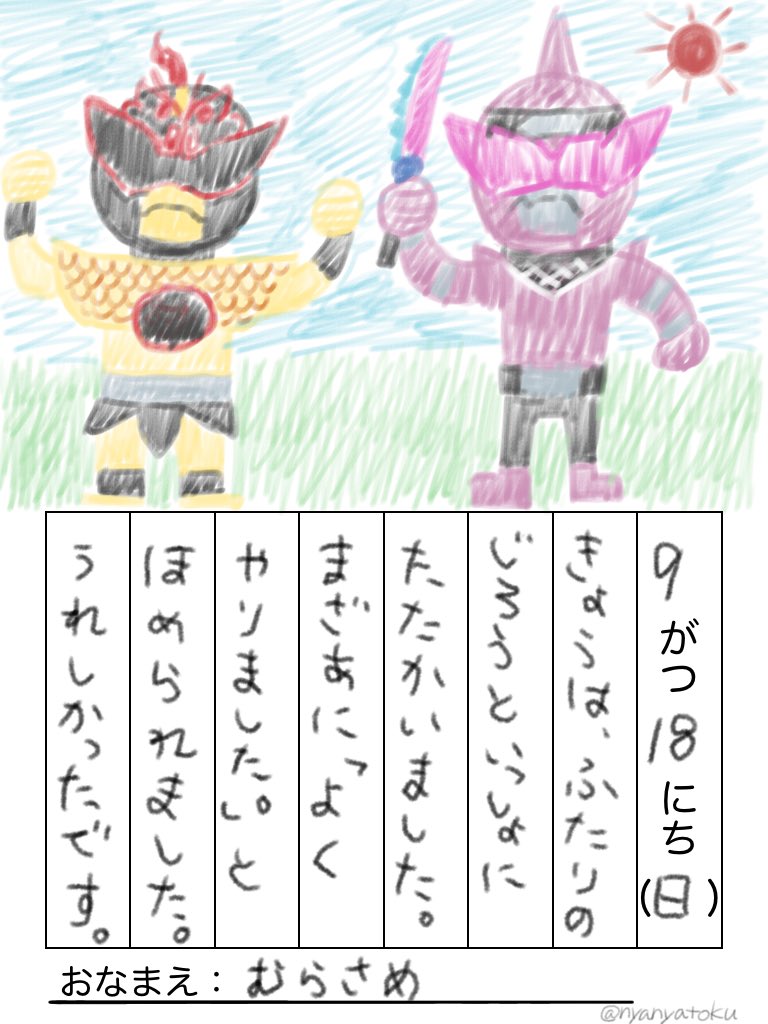 9がつ18にち(日)
きょうは、ふたりの
じろうといっしょに
たたかいました。
まざあに「よく
やりました。」と
ほめられました。
うれしかったです。
おなまえ：むらさめ
@nyanyatoku